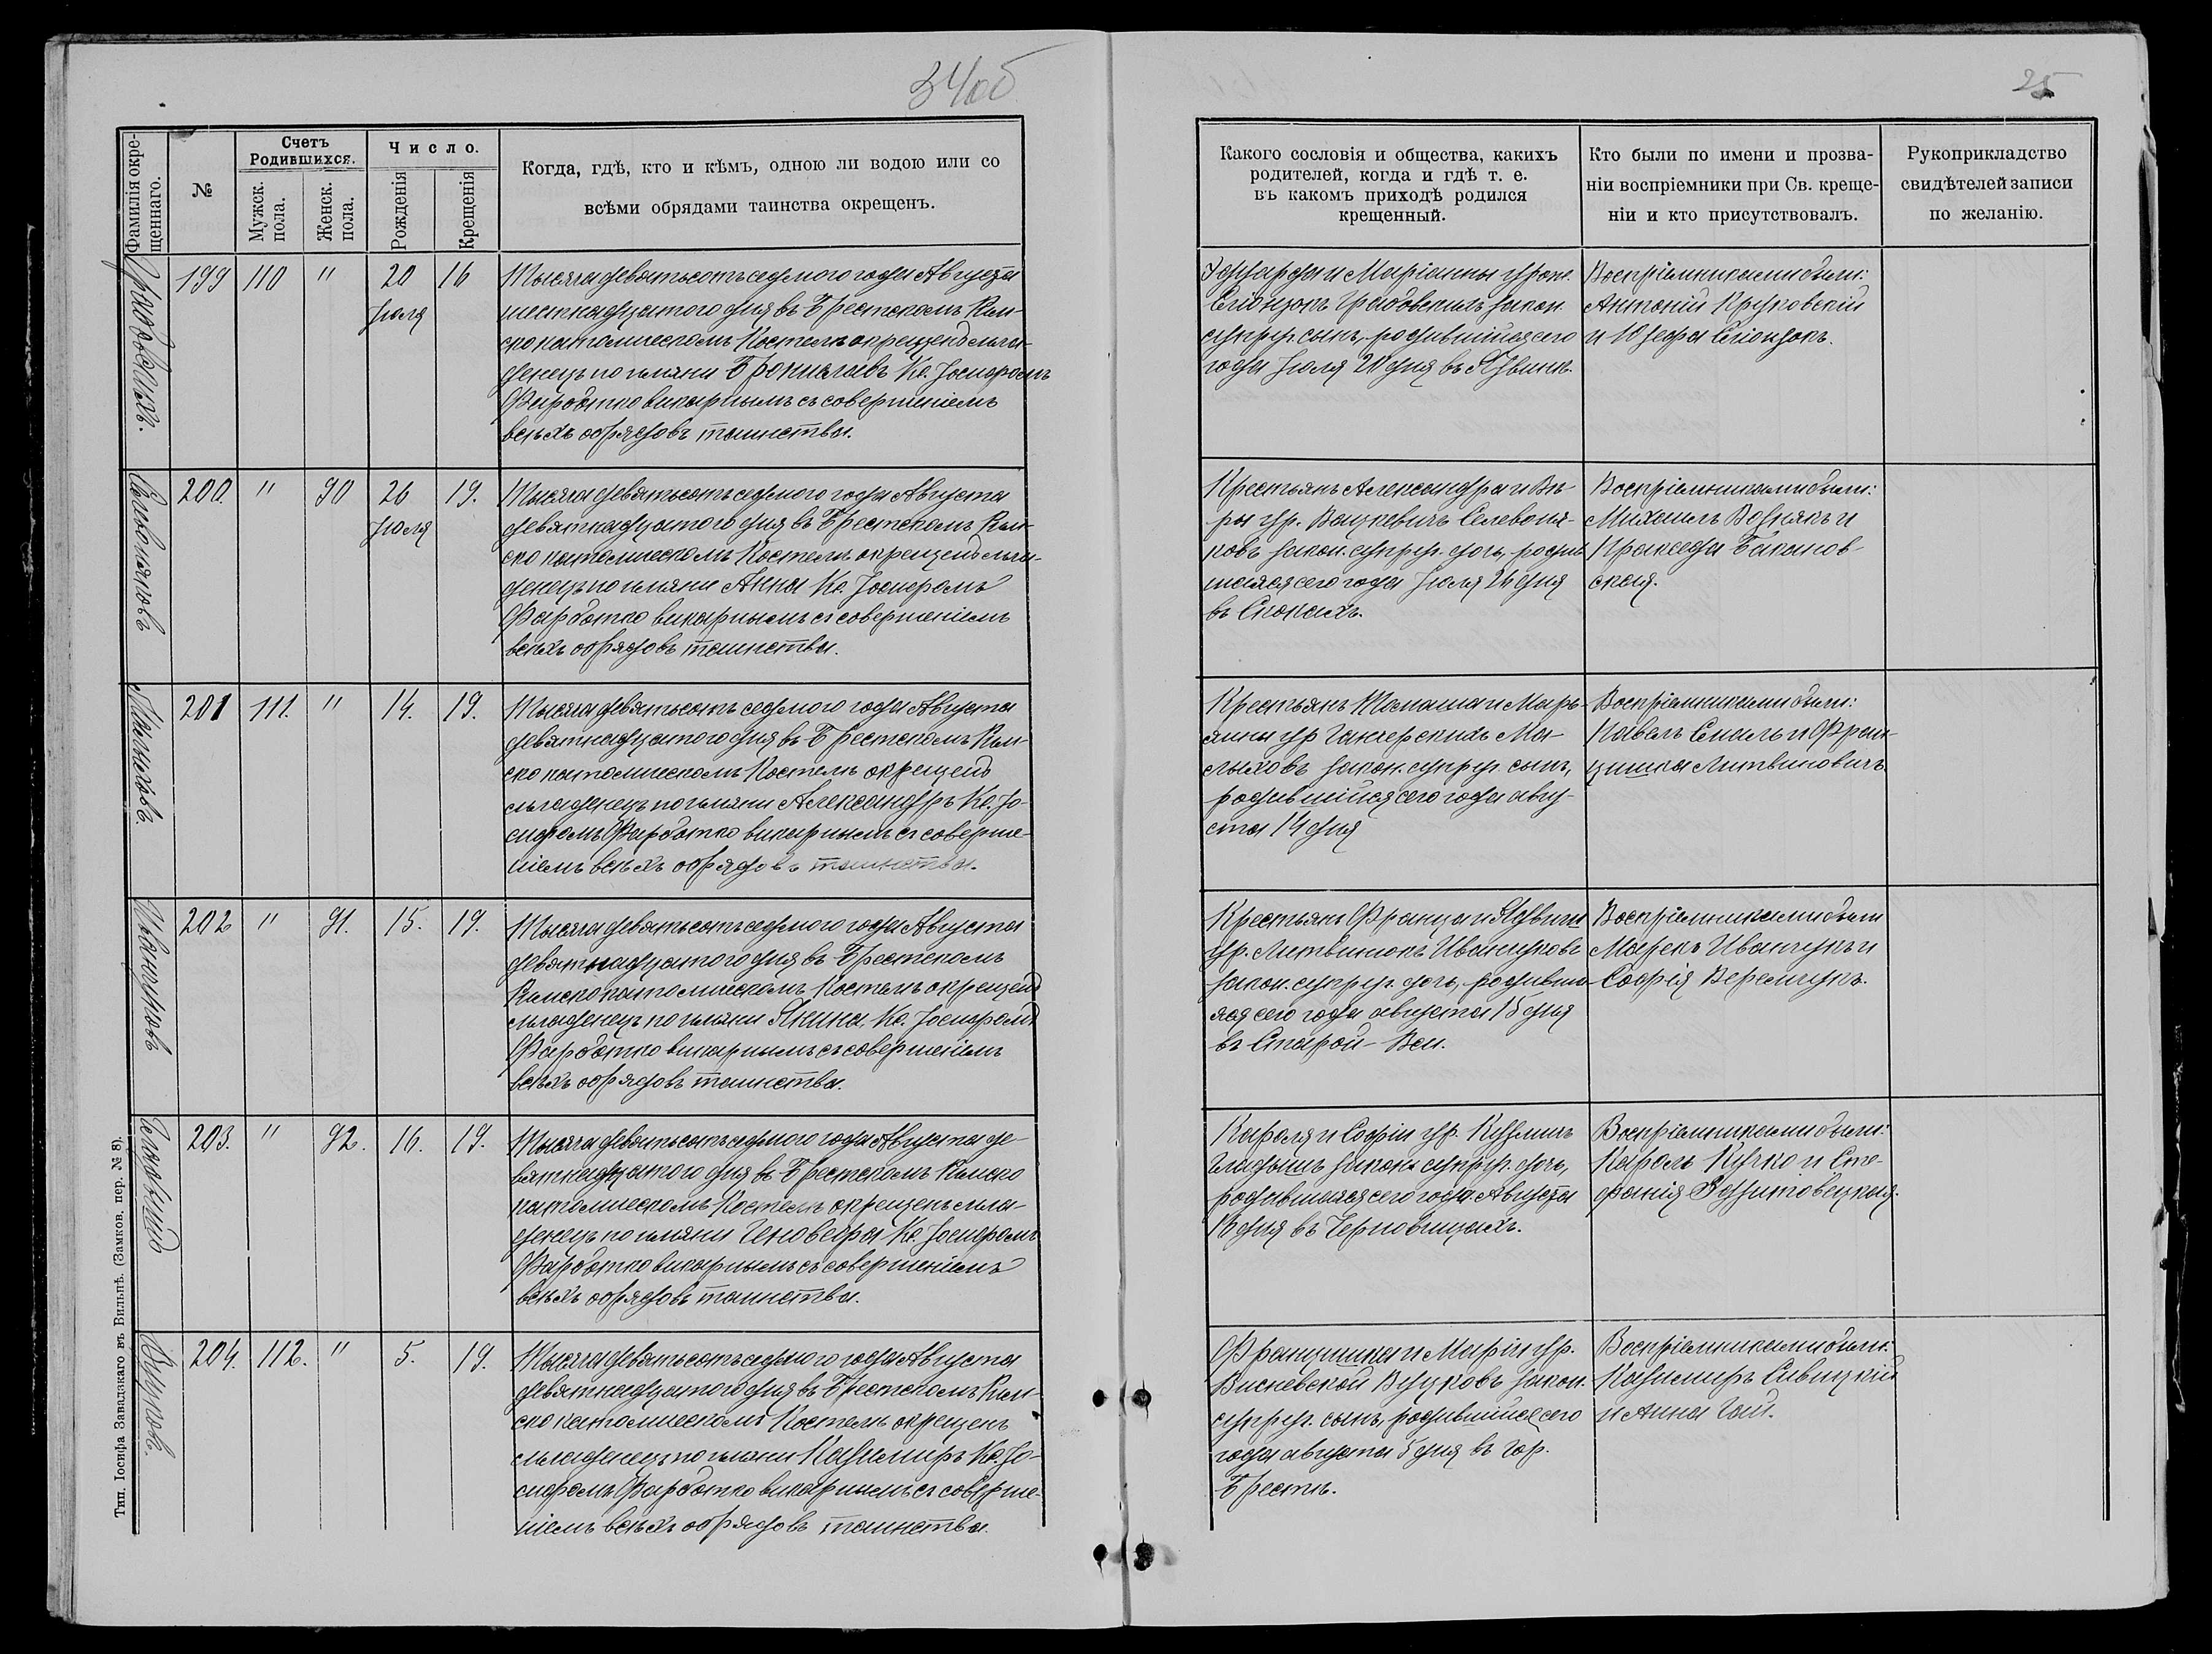 34об
25
Фамилія окре-
щеннаго.
№
Счетъ
Родившихся.
Мужск.
пола.
Женск.
пола.
Число.
Рожденія
Крещенія
Когда, гдѣ, кто и кѣмъ, одною ли водою или со
всѣми обрядами таинства окрещенъ.
Какого сословія и общества, какихъ
родителей, когда и гдѣ т. е.
въ какомъ приходѣ родился
крещенный.
Кто были по имени и прозва-
ніи воспріемники при Св. креще-
ніи и кто присутствовалъ.
Рукоприкладство
свидѣтелей записи
по желанію.
199 110 " 20 16
Іюля
Тысяча девятьсотъ седьмого года Августа
шестнадцатого дня въ Брестскомъ Рим-
ско католическомъ Костелѣ окрещенъ мла-
денецъ по имяни Брониславъ Кс. Іосифомъ
Фарботко викарнымъ съ совершеніемъ
всѣхъ обрядовъ таинства.
и Маріанны урож.
закон.
супруг. сынъ, родившійся сего
года Іюля 20 дня въ
Воспріемниками были:
Антоній Круковскій
и Юзефа
200. " 90 26 19.
Іюля
Селивоняковъ
Тысяча девятьсотъ седьмого года Августа
девятнадцатого дня въ Брестскомъ Рим-
ско католическомъ Костелѣ окрещенъ мла-
денецъ по имяни Анна Кс. Іосифомъ
Фарботко викарнымъ съ совершеніемъ
всѣхъ обрядовъ таинства.
Крестьянъ Александра и Вѣ-
ры ур. Вацкевичъ Селевоня-
ковъ закон. супруг. дочь, родив-
шаяся сего года Іюля 26 дня
въ Стокахъ.
Воспріемниками были:
Михаилъ Вознякъ и
Пракседа Баканов-
ская.
201 111. " 14. 19.
Малыховъ.
Тысяча девятьсотъ седьмого года Августа
девятнадцатого дня въ Брестскомъ Рим-
ско католическомъ Костелѣ окрещенъ
младенецъ по имяни Александръ Кс. Іо-
сифомъ Фарботко викарнымъ съ соверше-
ніемъ всѣхъ обрядовъ таинства.
Крестьянъ Томаша и Марь-
янны ур Ганчерскихъ Ма-
лыховъ закон. супруг. сынъ,
родившійся сего года авгу-
ста 14 дня
Воспріемниками были:
Павелъ и Фран-
цишка Литвиновичъ.
202 " 91. 15. 19.
Иванчуковъ
Тысяча девятьсотъ седьмого года Августа
девятнадцатого дня въ Брестскомъ
Римско католическомъ Костелѣ окрещенъ
младенецъ по имяни Янина, Кс. Іосифомъ
Фарботко викарнымъ съ совершеніемъ
всѣхъ обрядовъ таинства.
Крестьянъ Франца и Ядвиги
ур. Литвинюкъ Иванчуковъ
закон. супруг. дочь, родивша-
яся сего года августа 15 дня
въ Старой-Вси.
Воспріемниками были
Марекъ Иванчукъ и
Софія Веремчукъ.
203. " 92. 16. 19.
Тысяча девятьсотъ седьмого года Августа де-
вятнадцатого дня въ Брестскомъ Римско
католическомъ Костелѣ окрещенъ мла-
денецъ по имяни Геновефа Кс. Іосифомъ
Фарботко викарнымъ съ совершеніемъ
всѣхъ обрядовъ таинства.
Кароля и Софіи ур. Кузмичъ
закон. супруг. дочь,
родившаяся сего года Августа
16 дня въ Черновцахъ.
Воспріемниками были:
Кароль Кучко и Сте-
фанія
204. 112. " 5. 19.
Вуцковъ.
Тысяча девятьсотъ седьмого года Августа
девятнадцатого дня въ Брестскомъ Рим-
ско католическомъ Костелѣ окрещенъ
младенецъ по имяни Казимиръ Кс. Іо-
сифомъ Фарботко викарнымъ съ соверше-
ніемъ всѣхъ обрядовъ таинства.
Францишка и Маріи ур.
Висневской Вуцковъ закон.
супруг. сынъ, родившійся сего
года августа 5 дня въ гор.
Брестѣ.
Воспріемниками были:
Казимиръ Савицкій
и Анна Гай.
Тип. Іосифа Завадзкаго въ Вильнѣ. (Замков. пер. № 8).